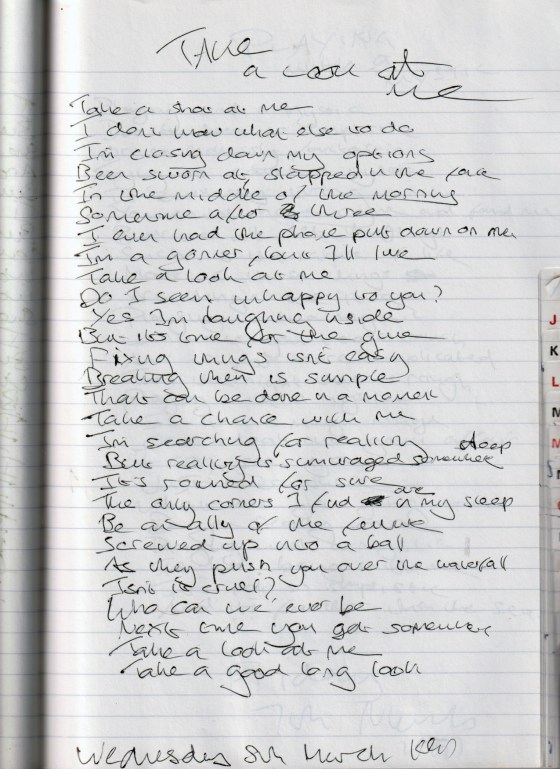 Take
a look at
me
Take a shot at me
I don't know what else to do
I'm closing down my options
Been sworn at, slapped in the face
In the middle of the morning
Sometime after three
I even had the phone put down on me
I'm a goner, but I'll live
Take a look at me
Do I seem unhappy to you?
Yes I'm laughing inside
But it's time for the glue
Fixing things isn't easy
Breaking them is simple
That can be done in a moment
Take a chance with me
I'm searching for reality
But reality is somewhere
steep
It's round for sure
The only corners I find are in my sleep
Be a ally of the future
Screwed up into a ball
As they push you over the waterfall
Isn't it cruel?
Who can we ever be
Next time you get somewhere
Take a look at me
Take a good long look
Wednesday 8th March
J
K
L
M
M
N